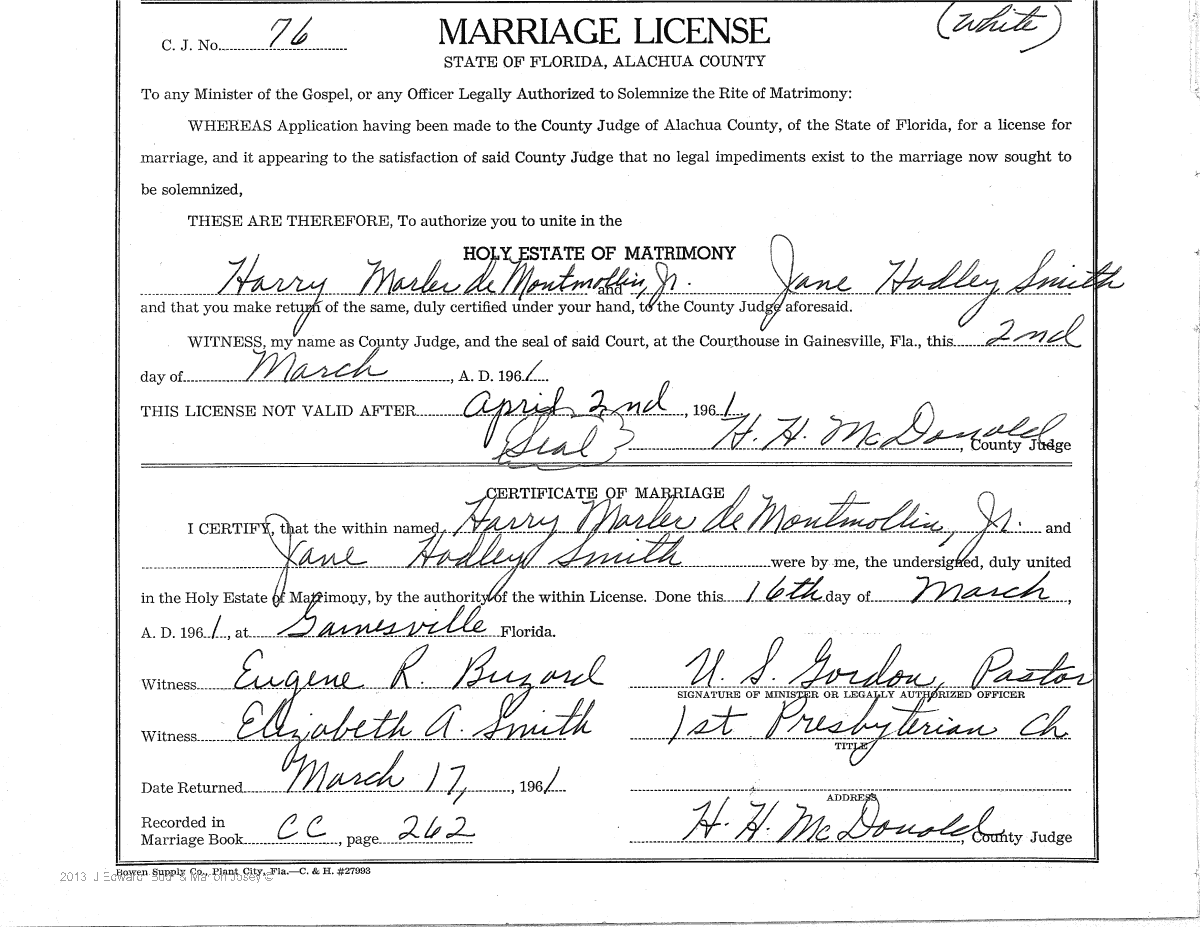 C. J. No. 76 MARRIAGE LICENSE (White)
STATE OF FLORIDA, ALACHUA COUNTY
To any Minister of the Gospel, or any Officer Legally Authorized to Solemnize the Rite of Matrimony:
WHEREAS Application having been made to the County Judge of Alachua County, of the State of Florida, for a license for
marriage, and it appearing to the satisfaction of said County Judge that no legal impediments exist to the marriage now sought to
be solemnized,
THESE ARE THEREFORE, To authorize you to unite in the
HOLY ESTATE OF MATRIMONY
Harry Marler de Montmollin, Jr. and Jane Hadley Smith
and that you make return of the same, duly certified under your hand, to the County Judge aforesaid.
WITNESS, my name as County Judge, and the seal of said Court, at the Courthouse in Gainesville, Fla., this 2nd
day of March, A. D. 1961
THIS LICENSE NOT VALID AFTER April 2nd, 1961
(Seal) H. H. McDonald, County Judge
CERTIFICATE OF MARRIAGE
I CERTIFY, that the within named Harry Marler de Montmollin, Jr. and
Jane Hadley Smith were by me, the undersigned, duly united
in the Holy Estate of Matrimony, by the authority of the within License. Done this 16th day of March,
A. D. 1961, at Gainesville Florida.
Witness Eugene R. Buzard U. S. Gordon, Pastor
SIGNATURE OF MINISTER OR LEGALLY AUTHORIZED OFFICER
Witness Elizabeth A. Smith 1st Presbyterian Ch
TITLE
Date Returned March 17, 1961
ADDRESS
Recorded in
Marriage Book CC, page 262 H. H. McDonald, County Judge
Bowen Supply Co., Plant City, Fla.—C. & H. #27993
2013 J Edward & Marion Josey ©